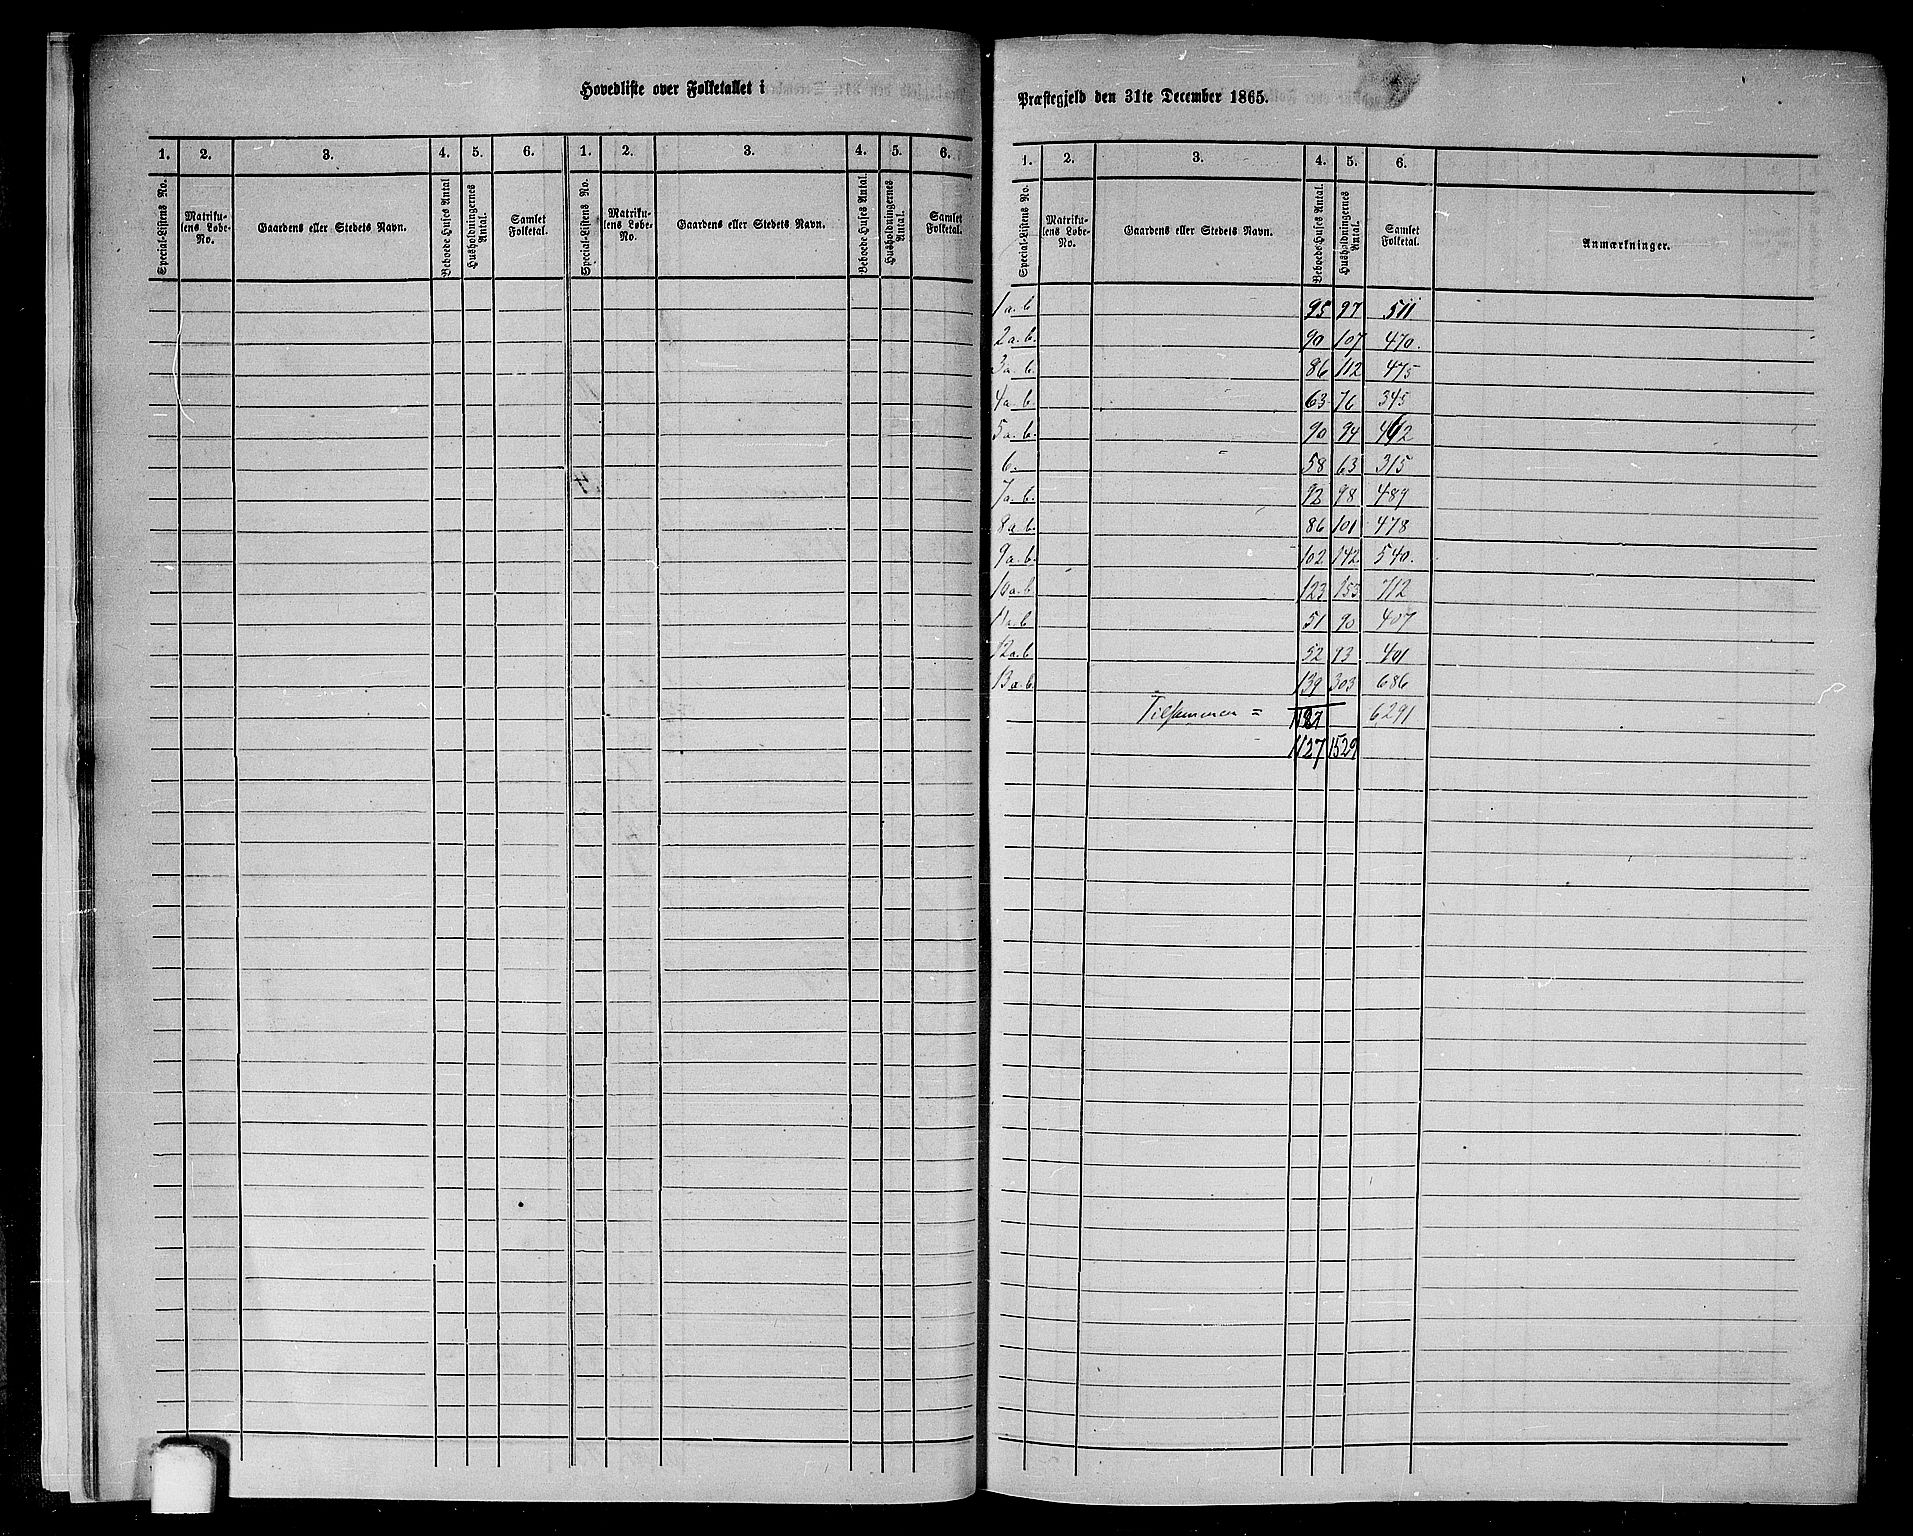 Hovedliste over Folketallet i
Præstegjeld den 31te December 1865.
1. 2. 3. 4. 5. 6. 1. 2. 3. 4. 5. 6.
Special-Listens No. Matriku-lens Løbe-No. Gaardens eller Stedets Navn. Beboede Huses Antal Husholdningernes Antal. Samlet Folketal. Special-Listens No. Matriku-lens Løbe-No. Gaardens eller Stedets Navn. Beboede Huses Antal. Husholdningernes Antal. Samlet Folketal.
1. 2. 3. 4. 5. 6.
Special-Listens No. Matriku-lens Løbe-No. Gaardens eller Stedets Navn. Beboede Huses Antal. Husholdningernes Antal. Samlet Folketal. Anmærkninger.
1 a. b 95 97 511
2 a. b. 90 107 470.
3 a. b. 86 112 475
4 a. b. 63 76 345
5 a. b. 90 94 462
6. 58 63 315
7 a. b. 92 98 489
8 a. b. 86 101 478
9 a. b. 102 142 540.
10 a. b 123 153 712
11 a. b 51 90 407
12 a. b 52 93 401
13 a. b. 139 303 686
Tilsammen = 6291
1127 1529